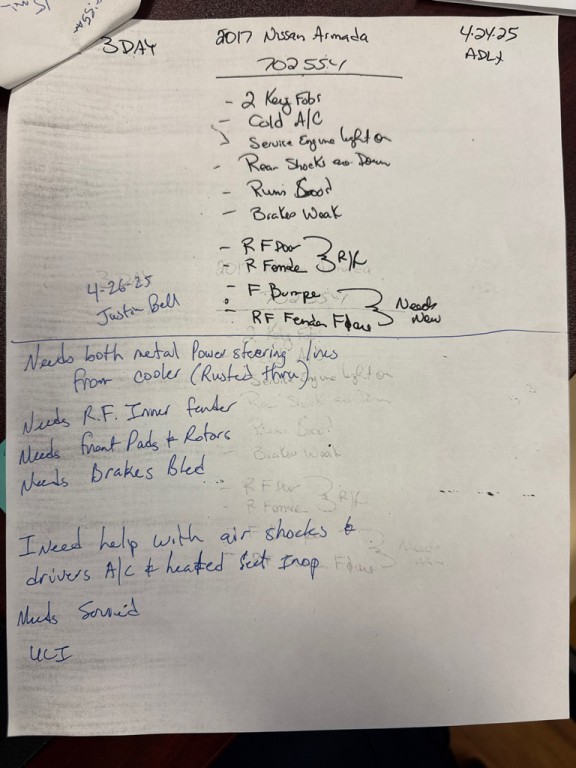 3 DAY
2017 Nissan Armada
4.24.25
ADLX
702554
- 2 Key Fobs
- Cold A/C
Service Engine light on
- Rear Shocks are Down
- Runs Good
- Brakes Weak
- R F Door
- R Fender
- F Bumper
RF Fender Flare
Needs New
4-26-25
Justin Bell
Needs both metal Power steering lines
from cooler (Rusted thru)
Needs R.F. Inner fender
Needs front Pads & Rotors
Needs Brakes Bled
I Need help with air shocks &
drivers A/c & heated Seat Inop
Needs
UCI